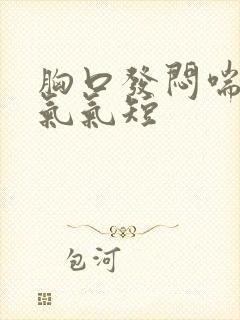 胸口發悶喘
氣氣短
包河